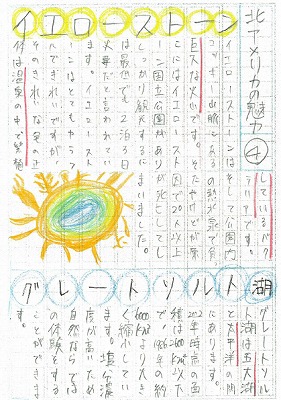 北アメリカの魅力④
イエローストーン
イエローストーンは
ロッキー山脈にある
巨大な火山です。そ
こにはイエロースト
ーン国立公園があり
しっかり観光するに
は最低でも2泊3日
必要だと言われてい
ます。イエロースト
ーンはとてもきれい
そのきれいな泉の正
体は温泉の中で繁殖
しているバク
テリアです。
そして公園内
の熱水泉で食
なったけどが原
因で20人以上
が死亡してし
まいました。
グレートソルト湖
グレートソル
ト湖は五大では
と太平洋の間
にあります。
2012年時点の面
積は2460km²以下
で、1986年の約
6000km²より大き
く縮小してい
ます。塩分濃
度が高いため
自然ならでは
の体験をする
ことができま
す。